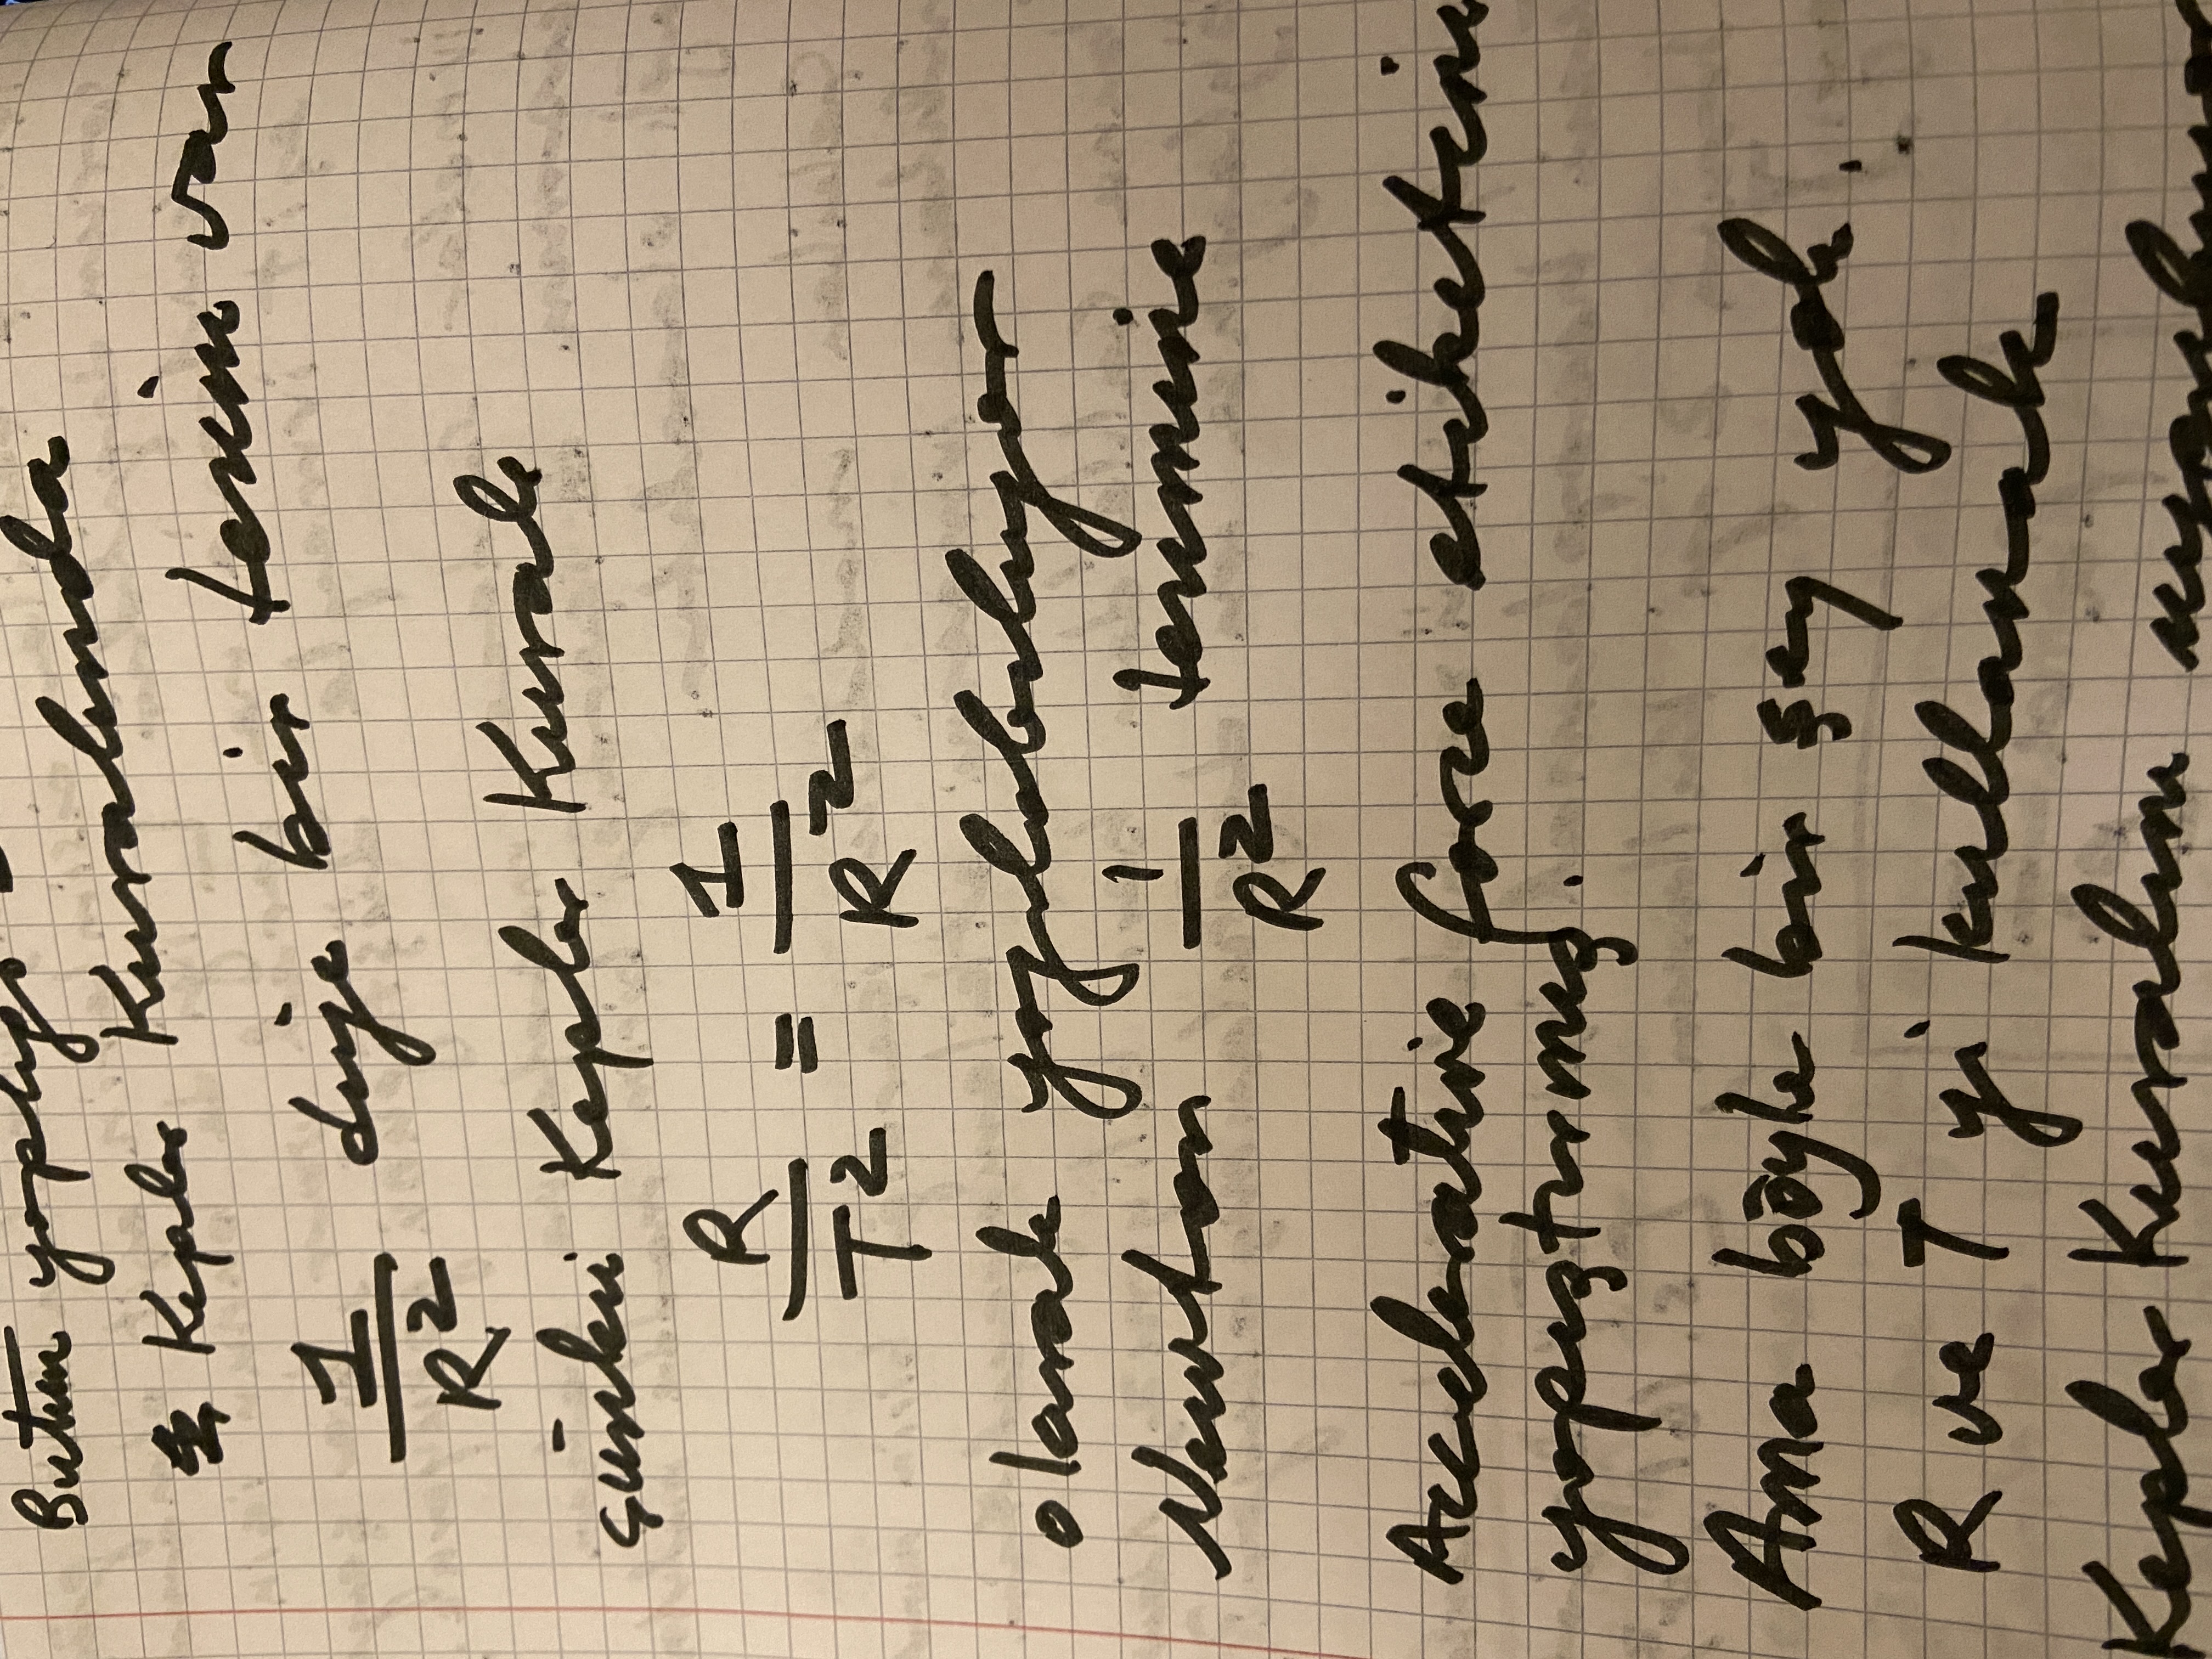 Bütün yaptığı
Kepler Kuralında
1/R² diye bir terim var
çünkü Kepler Kuralı
R/T² = 1/R²
olarak yazılabiliyor
Newton 1/R² termine
Accelerative force etiketini
yapıştırmış.
Ama böyle bir şey yok.
R ve T yi kullanarak
Kepler Kuralını